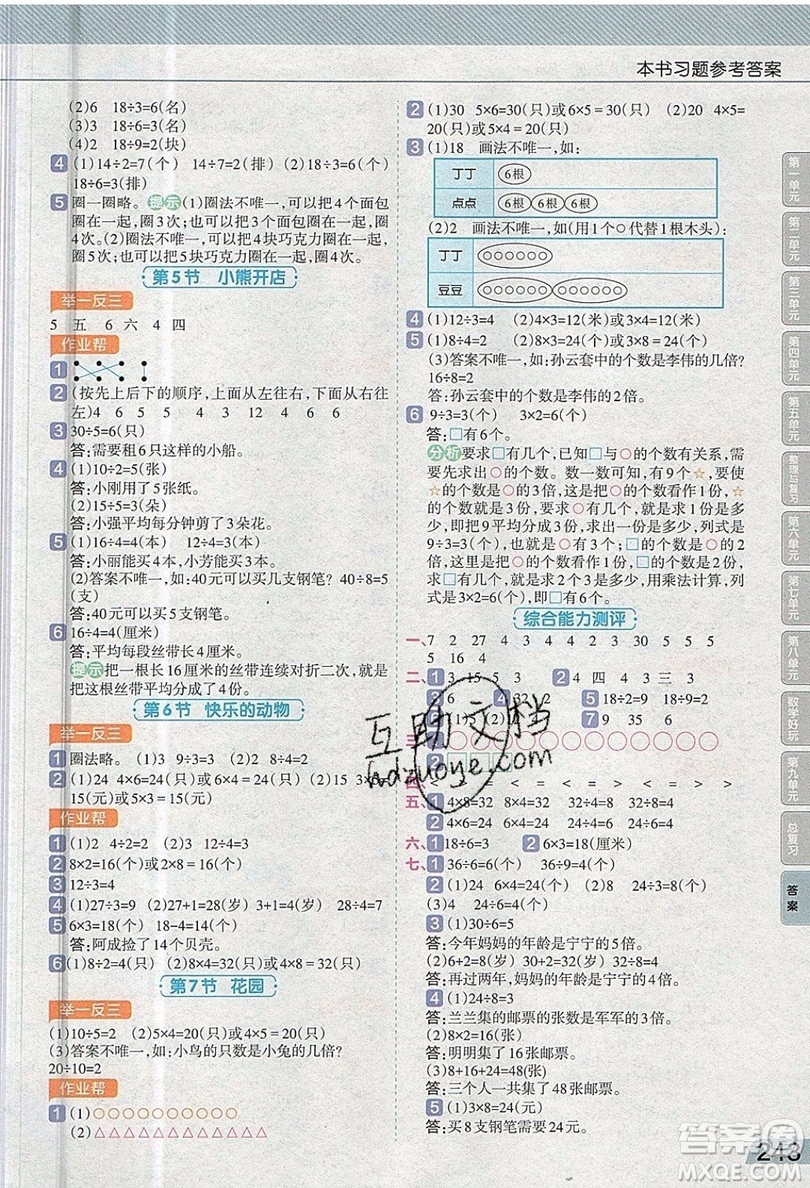 本书习题参考答案
(2)6 18÷3=6(名)
(3)3 18÷6=3(名)
(4)2 18÷9=2(块)
4 (1)14÷2=7(个) 14÷7=2(排) (2)18÷3=6(排)
18÷6=3(个)
5 圈一圈略。提示(1)圈法不唯一,可以把4个面包
圈在一起,圈3次;也可以把3个面包圈在一起,圈
4次。(2)圈法不唯一,可以把4块巧克力圈在一
起,圈5次;也可以把5块巧克力圈在一起,圈4次。
第5节 小熊开店
举一反三
5 五 6 六 4 四
作业帮
1
2 (按先上后下的顺序,上面从左往右,下面从右往
左)4 6 5 5 4 3 2 4 4 6 5
3 30÷5=6(只)
答:需要租6只这样的小船。
4 (1)10÷2=5(张)
答:小刚用了5张纸。
(2)15÷5=3(朵)
答:小强平均每分钟剪了3朵花。
5 (1)16÷4=4(本) 12÷3=4(本)
答:小丽能买4本,小芳能买4本。
(2)答案不唯一,如:40元可以买几支钢笔? 40÷8=5
(支)
答:40元可以买5支钢笔。
6 16÷4=4(厘米)
答:平均每段丝带长4厘米。
提示把一根长16厘米的丝带连续对折二次,就是
把这根丝带平均分成了4份。
第6节 快乐的动物
举一反三
1 圈法略。 (1)3 9÷3=3 (2)2 8÷2=4
2 (1)24 4×6=24(元)或6×4=24(元) (2)15 3×5=
15(元)或5×3=15(元)
作业帮
1 (1)2 4÷2=2 (2)3 12÷4=3
2 8×2=16(个)或2×8=16(个)
3 12÷3=4
4 (1)27÷3=9(岁) (2)27+1=28(岁) 3+1=4(岁) 28÷4=7
5 6×3=18(个)或3×6=18(个) 18-4=14(个)
答:阿成捡了14个贝壳。
6 (1)8÷2=4(只) (2)4×8=32(个)或8×4=32(个)
第7节 花园
举一反三
(1)10÷5=2 (2)5×4=20(只)或4×5=20(只)
(3)答案不唯一,如:小鸟的只数是小兔的几倍?
20÷10=2
作业帮
1 (1)○○○○○○○○○○○○
(2)△△△△△△△△△△△△△△
2 (1)30 5×6=30(只)或6×5=30(只) (2)20 4×5=
20(只)或5×4=20(只)
3 (1)18 画法不唯一,如:
丁丁 6根
点点 6根 6根 6根
(2)2 画法不唯一,如(用1个○代替1根木头):
丁丁 ○○○○○○
豆豆 ○○○○○○ ○○○○○○
4 (1)12÷3=4 (2)4×3=12(米)或3×4=12(米)
5 (1)8÷4=2 (2)8×3=24(个)或3×8=24(个)
(3)答案不唯一,如:孙云套中的个数是李伟的几倍?
16÷8=2
答:孙云套中的个数是李伟的2倍。
6 9÷3=3(个) 3×2=6(个)
答:□有6个。
分析要求□有几个,已知□与○的个数有关系,需
要先求出○的个数。数一数可知,有9个☆,要使☆
的个数是○的3倍,就是把○的个数看作1份,☆
的个数是这样的3份,就是求○的个数1份是多
少,即把9平均分成3份,求出1份是多少,列式是
9÷3=3(个);把○的个数3个看作1份,□的个数是
这样的2份,就是求2个3是多少,用乘法计算,列式
是3×2=6(个),所以□有6个。
综合能力测评
一、7 2 27 4 3 4 4 30 5 5 5
5 16 4
二、1 3 15 5 3 2 4 四 4 三 3
3 6 4 32 2 5 18÷2=9 18÷9=2
6 (1)5 (2)2 7 9 35 6
三、
四、
五、1 4×8=32 8×4=32 32÷4=8 32÷8=4
2 4×6=24 6×4=24 24÷4=6 24÷6=4
六、1 12÷6=2 2 6×3=18(厘米)
七、1 36÷6=6(个) 36÷9=4(个)
2 (1)24 6×4=24 (2)4 24÷6=4
(3)4 24÷6=4(个)
3 (1)30÷6=5
答:今年妈妈的年龄是宁宁的5倍。
(2)6+2=8(岁) 30+2=32(岁) 32÷8=4
答:再过两年,妈妈的年龄是宁宁的4倍。
4 (1)24÷8=3
答:兰兰集的邮票的张数是军军的3倍。
(2)8×2=16(张)
答:明明集了16张邮票。
(3)24+8+16=48(张)
答:三个人一共集了48张邮票。
5 (1)3×8=24(元)
答:买8支钢笔需要24元。
第一单元
第二单元
第三单元
第四单元
第五单元
整理与复习
第六单元
第七单元
第八单元
数学好玩
第九单元
总复习
答案
243
互助文档
hdzuoye.com
答案圈
MXQE.COM